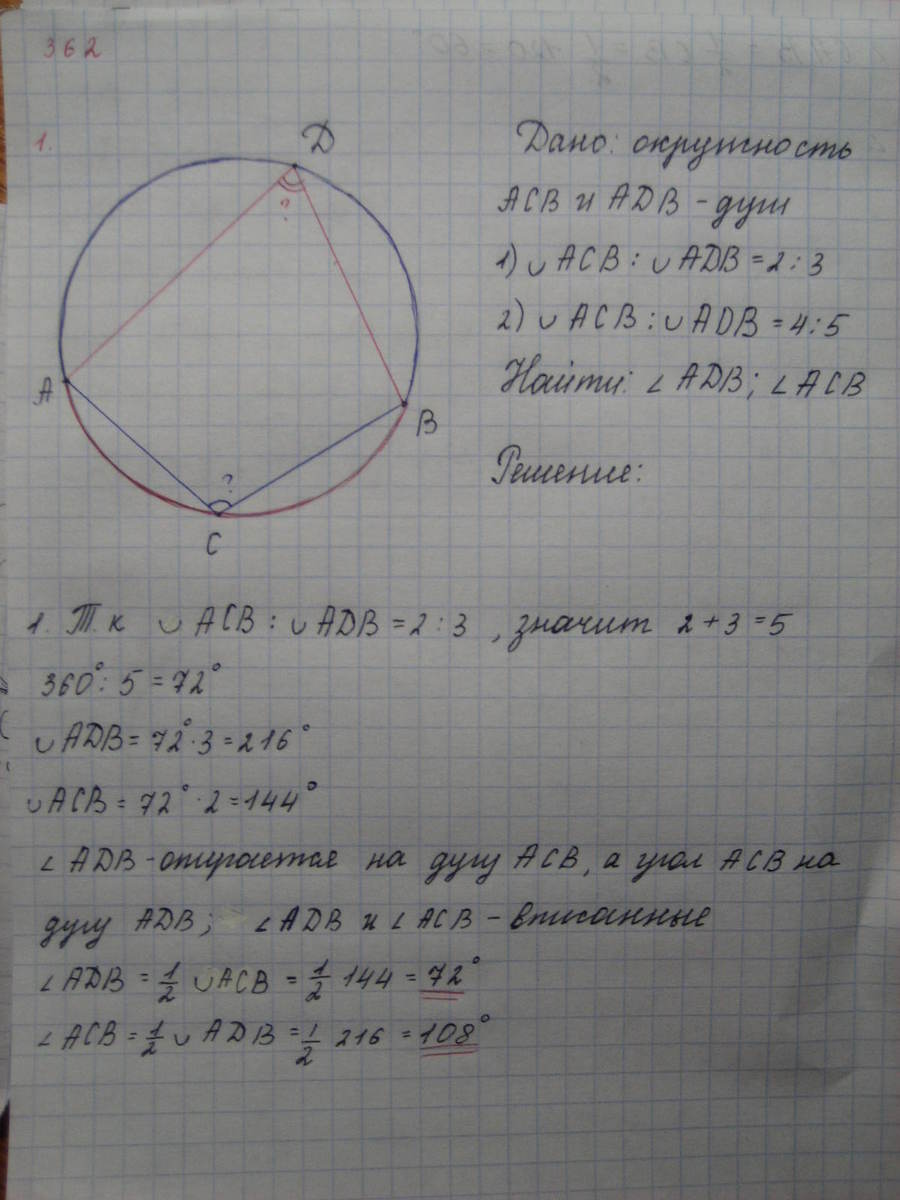 362
1.
D
?
A
B
?
C
Дано: окружность
ACB и ADB - дуги
1) ∪ ACB : ∪ ADB = 2 : 3
2) ∪ ACB : ∪ ADB = 4 : 5
Найти: ∠ ADB; ∠ ACB
Решение:
1. Т.к ∪ ACB : ∪ ADB = 2 : 3 , значит 2 + 3 = 5
360° : 5 = 72°
∪ ADB = 72° · 3 = 216°
∪ ACB = 72° · 2 = 144°
∠ ADB - опирается на дугу ACB, а угол ACB на
дугу ADB; ∠ ADB и ∠ ACB - вписанные
∠ ADB = 1/2 ∪ ACB = 1/2 144 = 72°
∠ ACB = 1/2 ∪ ADB = 1/2 216 = 108°